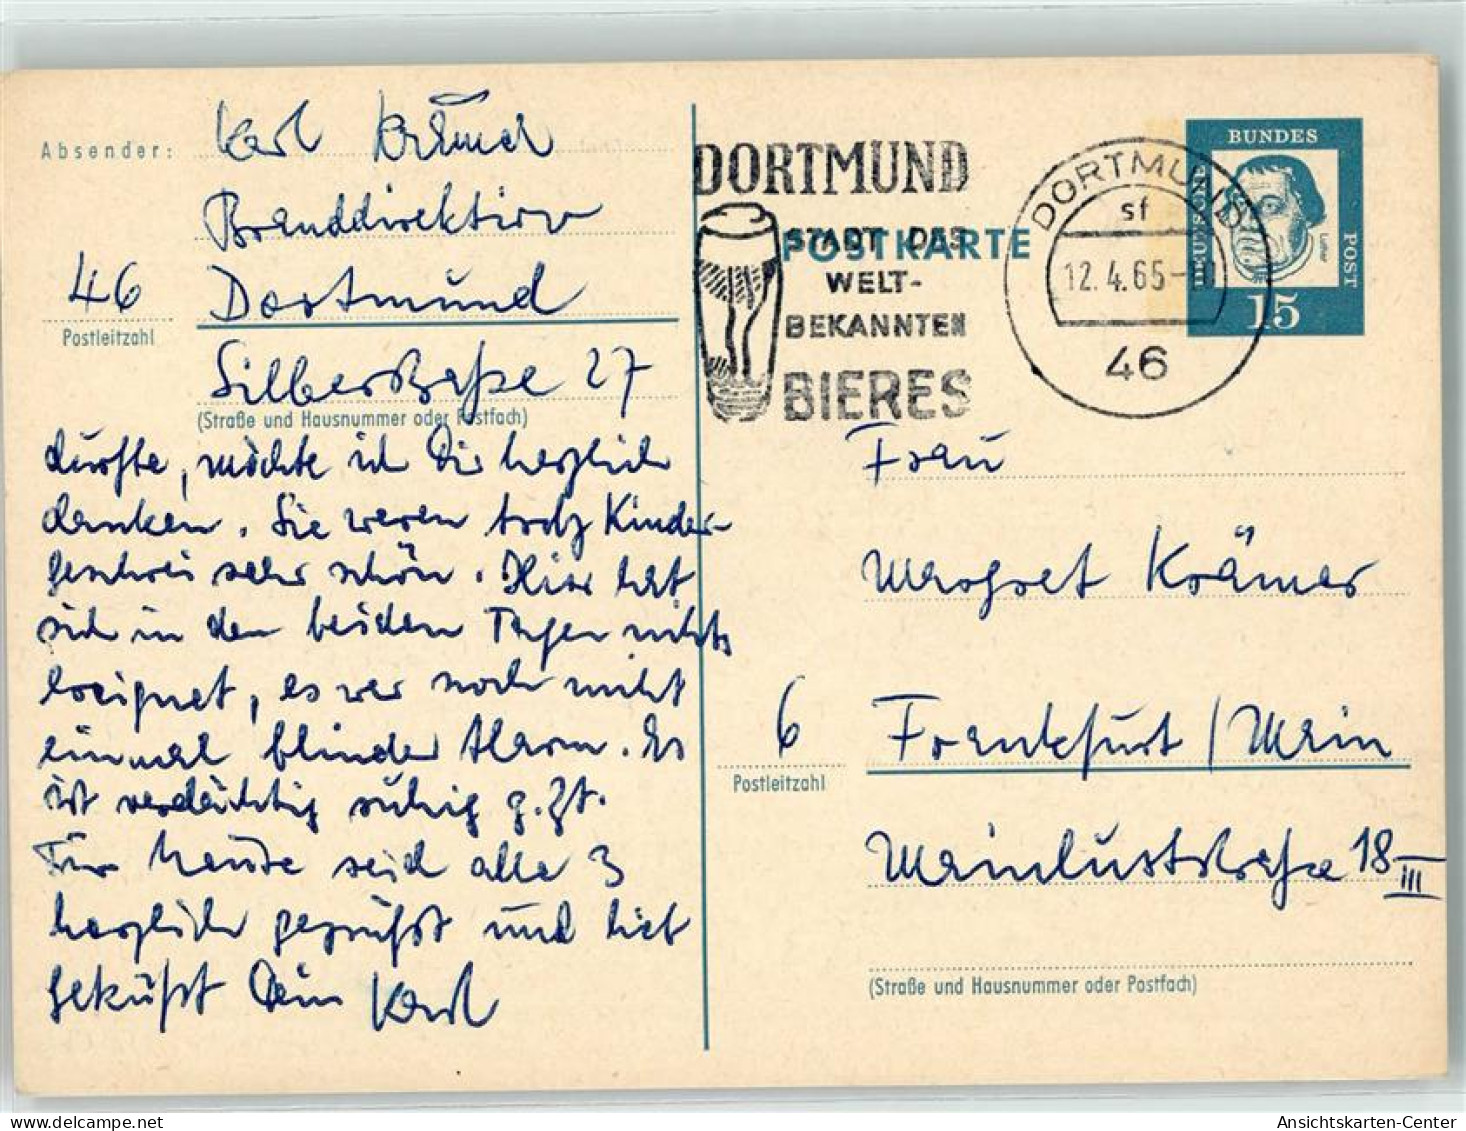 Absender: Karl
Branddirektion
46 Dortmund
Postleitzahl
Silberstraße 27
(Straße und Hausnummer oder Postfach)
durfte, möchte ich Dir herzlich
danken. Sie waren trotz Kinder-
geschrei sehr schön. Hier hat
sich in den beiden Tagen nichts
ereignet, es war noch nicht
einmal blinder Alarm. Es
ist verdächtig ruhig z.Zt.
Für heute seid alle 3
herzlich gegrüßt und lieb
geküßt Dein Karl
DORTMUND
STADT DES
WELT-
BEKANNTEN
BIERES
POSTKARTE
DORTMUND
sf
12.4.65
46
DEUTSCHE
BUNDES
POST
Luther
15
Frau
Margret Krämer
6 Frankfurt / Main
Postleitzahl
Mainluststraße 18 III
(Straße und Hausnummer oder Postfach)
Ansichtskarten-Center